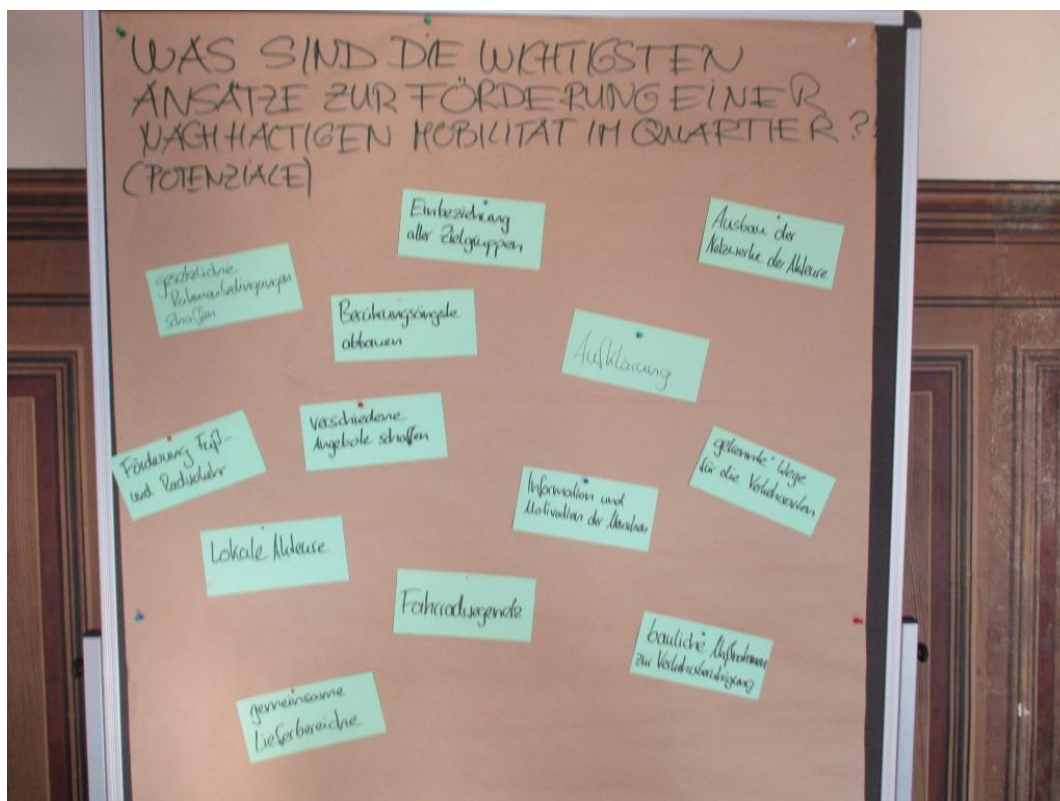 WAS SIND DIE WICHTIGSTEN
ANSÄTZE ZUR FÖRDERUNG EINER
NACHHALTIGEN MOBILITÄT IM QUARTIER?
(POTENZIALE)
Einbeziehung
aller Zielgruppen
Ausbau der
Netzwerke der Akteure
gesetzliche
Rahmenbedingungen
schaffen
Berührungsängste
abbauen
Aufklärung
verschiedene
Angebote schaffen
Förderung Fuß-
und Radverkehr
getrennte Wege
für die Verkehrsarten
Information und
Motivation der Menschen
Lokale Akteure
Fahrradwegenetz
bauliche Maßnahmen
zur Verkehrsberuhigung
gemeinsame
Lieferbereiche